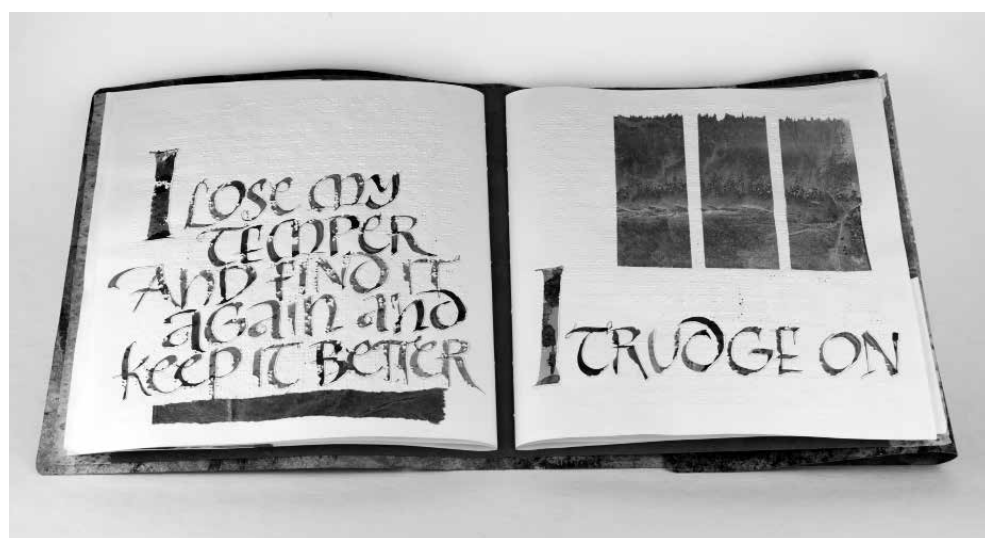 I LOSE MY
TEMPER
AND FIND IT
again and
KEEP IT BETTER
I TRUDGE ON